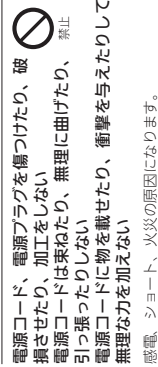 電源コード、電源プラグを傷つけたり、破
損させたり、加工をしない
電源コードは束ねたり、無理に曲げたり、
引っ張ったりしない
電源コードに物を載せたり、衝撃を与えたりして
無理な力を加えない
感電、ショート、火災の原因になります。
禁止